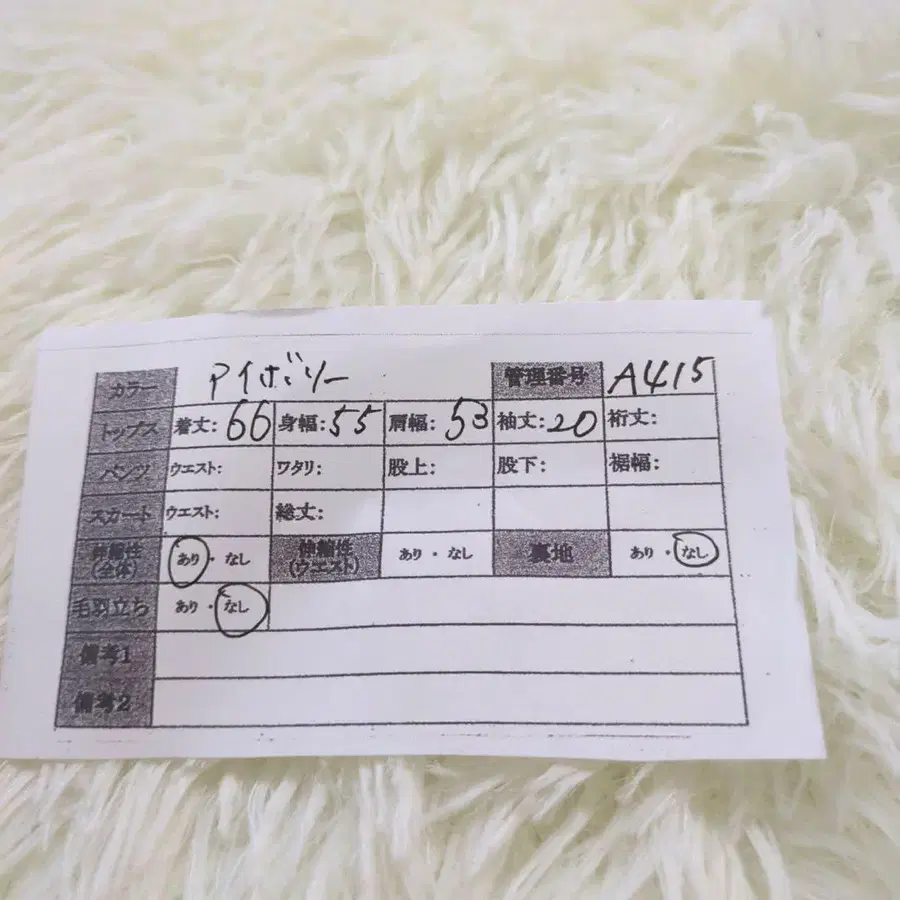 カラー アイボリー 管理番号 A415
トップス 着丈: 66 身幅: 55 肩幅: 53 袖丈: 20 裄丈:
パンツ ウエスト: ワタリ: 股上: 股下: 裾幅:
スカート ウエスト: 総丈:
伸縮性(全体) あり・なし 伸縮性(ウエスト) あり・なし 裏地 あり・なし
毛羽立ち あり・なし
備考1
備考2